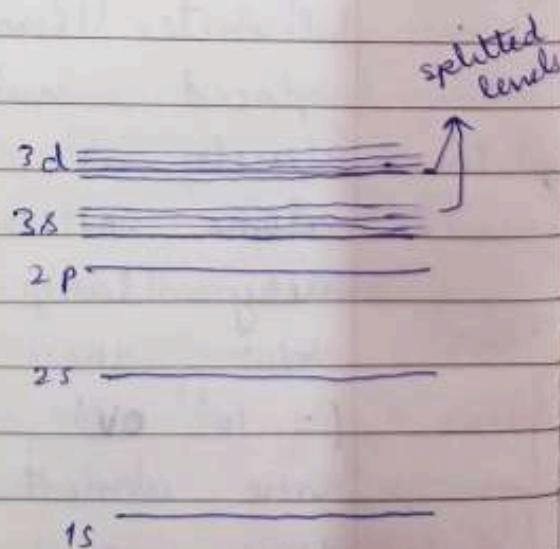 splitted
levels
3d
3s
2p
2s
1s